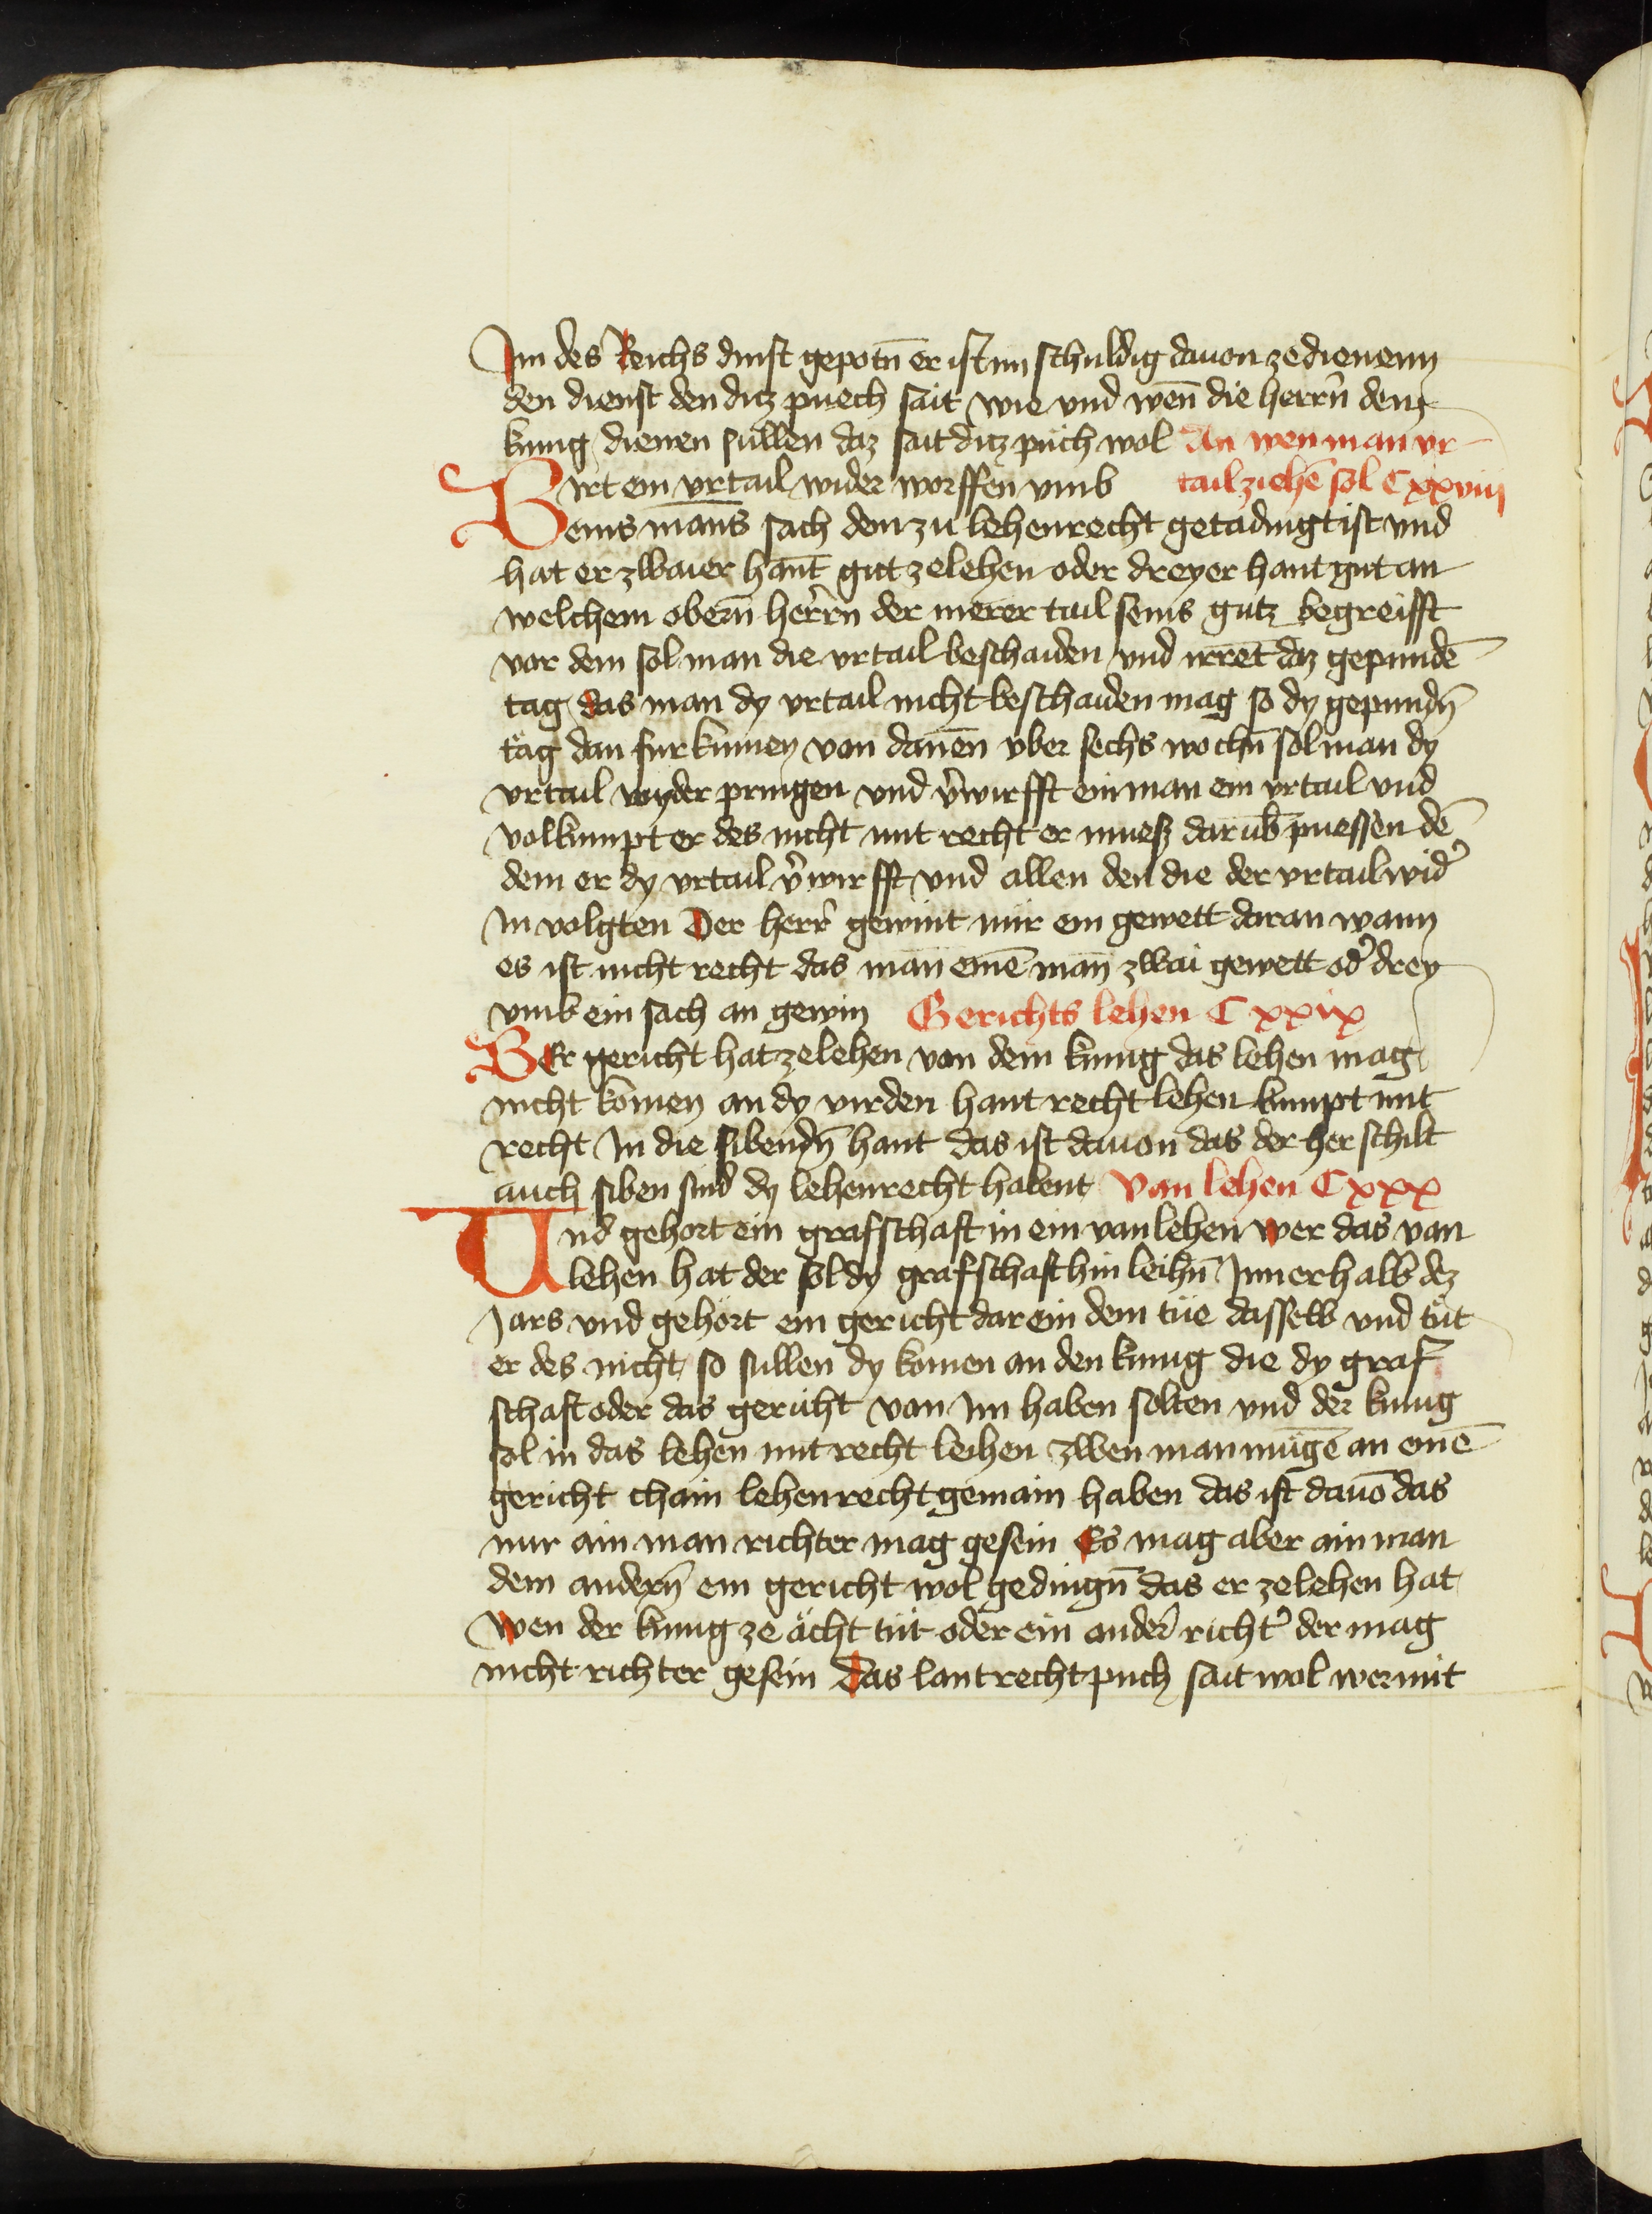 Im des Reichs dinst gepotn̄ er ist im schuldig dauon ze dienenn
den dienst den ditz puech sait wie vnd wen̄ die herrn̄ dem
kunig dienen sullen daz sait ditz puch wol An wen man vr-
Wirt ein vrtail wider worffen vmb tail ziehē sol Cxxviij
eins mans sach dem zu lehenrecht getadingt ist vnd
hat er zwaier hant gut ze lehen oder dreyer hant gut an
welchem obern̄ herrn der merer tail seins gutz begreifft
vor dem sol man die vrtail beschaiden vnd irret daz gepundē
tag das man dy vrtail nicht beschaiden mag so dy gepundn̄
täg dan furkumen von danen̄ vber sechs wochn̄ sol man dy
vrtail wyder pringen vnd v̄wirfft ein man ein vrtail vnd
volkumpt er des nicht mit recht er muesz darub̄ puessen dē
dem er dy vrtail v̄wirfft vnd allen den die der vrtail wid̾
In volgten Der herr gewint nür ein gewett daran wann
es ist nicht recht das man einē man zwai gewett od̾ drey
vmb ein sach an gewin Gerichts lehen Cxxix
WEr gericht hat ze lehen von dem kunig das lehen mag
nicht komen an dy virden hant recht lehen kumpt mit
recht In die sibendn̄ hant das ist dauon das der her schilt
auch siben sind dy lehenrecht habent Van lehen Cxxx
Und gehort ein grafschaft in ein van lehen wer das van
lehen hat der sol dy grafschaft hin leihn̄ Inner halb dez
Jars vnd gehört ein gericht dar ein dem tüe dasselb vnd tüt
er des nicht so sullen dy komen an den kunig die dy graf
schaft oder das gericht von Im haben solten vnd der kunig
sol in das lehen mit recht leihen Zwen man mugē an einē
gericht chain lehenrecht gemain haben das ist dauō das
nur ain man richter mag gesein Es mag aber ain man
dem andern̄ ein gericht wol gedingn̄ das er ze lehen hat
Wen der kunig ze ächt tüt oder ein ander richt̾ der mag
nicht richter gesein Das lantrecht puch sait wol wer mit